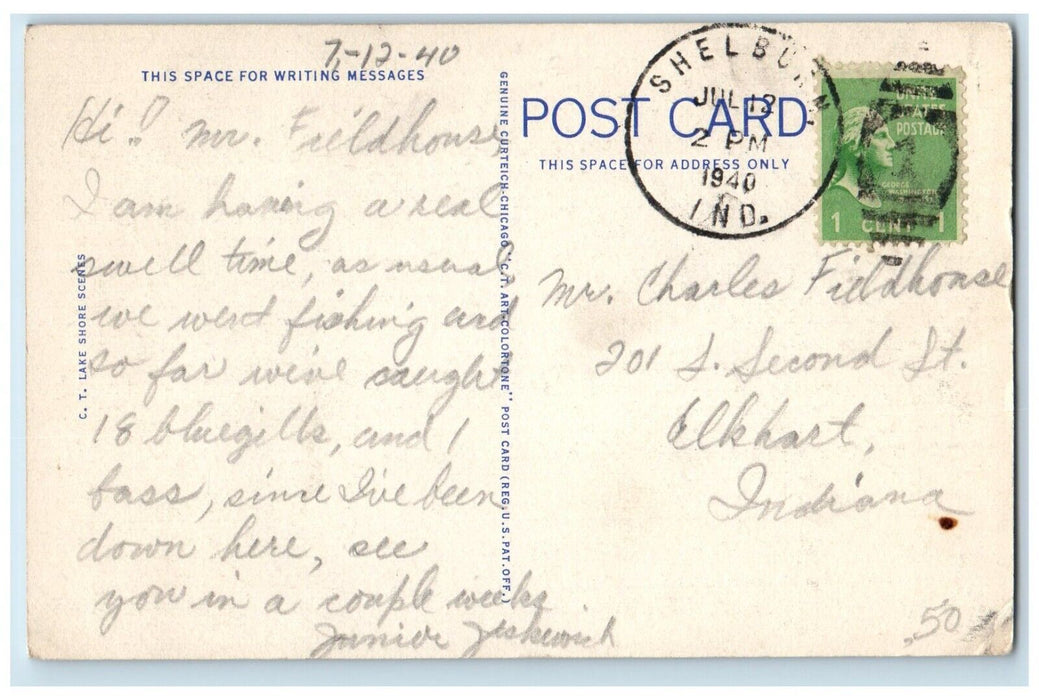 7-12-40
THIS SPACE FOR WRITING MESSAGES
Hi! Mr. Fieldhouse
I am having a real
swell time, as usual,
we went fishing and
so far we've caught
18 bluegills, and 1
bass, since I've been
down here, see
you in a couple weeks
Junior
C. T. LAKE SHORE SCENES
GENUINE CURTEICH-CHICAGO "C.T. ART-COLORTONE" POST CARD (REG. U.S. PAT. OFF.)
POST CARD
THIS SPACE FOR ADDRESS ONLY
SHELBURN,
JUL 12
2 PM
1940
IND.
UNITED
STATES
POSTAGE
1
GEORGE
WASHINGTON
1 CENT 1
Mr. Charles Fieldhouse
201 S. Second St.
Elkhart,
Indiana
.50